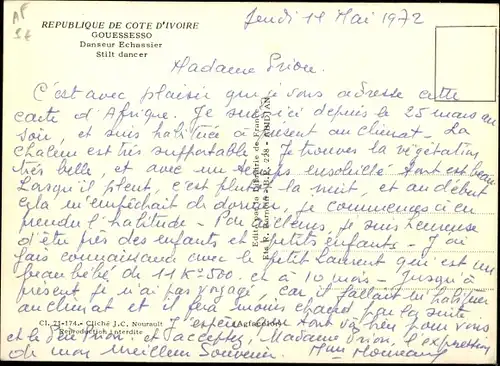 AF
REPUBLIQUE DE COTE D'IVOIRE
GOUESSESSO
Danseur Echassier
Stilt dancer
Jeudi 11 Mai 1972
Madame Prion.
C'est avec plaisir que je vous adresse cette
carte d'Afrique. Je suis ici depuis le 25 mars au
soir, et suis habituée à présent au climat. La
chaleur est très supportable. Je trouve la végétation
très belle, et avec un temps ensoleillé tout est beau
Lorsqu'il pleut, c'est plutôt la nuit, et au début
cela m'empêchait de dormir, je commence à en
prendre l'habitude - Par ailleurs, je suis heureuse
d'être près des enfants et petits enfants - J'ai
fais connaissance avec le petit Laurent qui est un
beau bébé de 11 K° 500. et a 10 mois - Jusqu'à
présent je n'ai pas voyagé, car il fallait m'habituer
au climat et il fera moins chaud par la suite
J'espère que tout va bien pour vous
et le Prion, et acceptez, Madame Prion, l'expression
de mon meilleur Souvenir.
Cl. 21-174 - Cliché J.C. Nourault
Reproduction interdite
(Agfacolor)